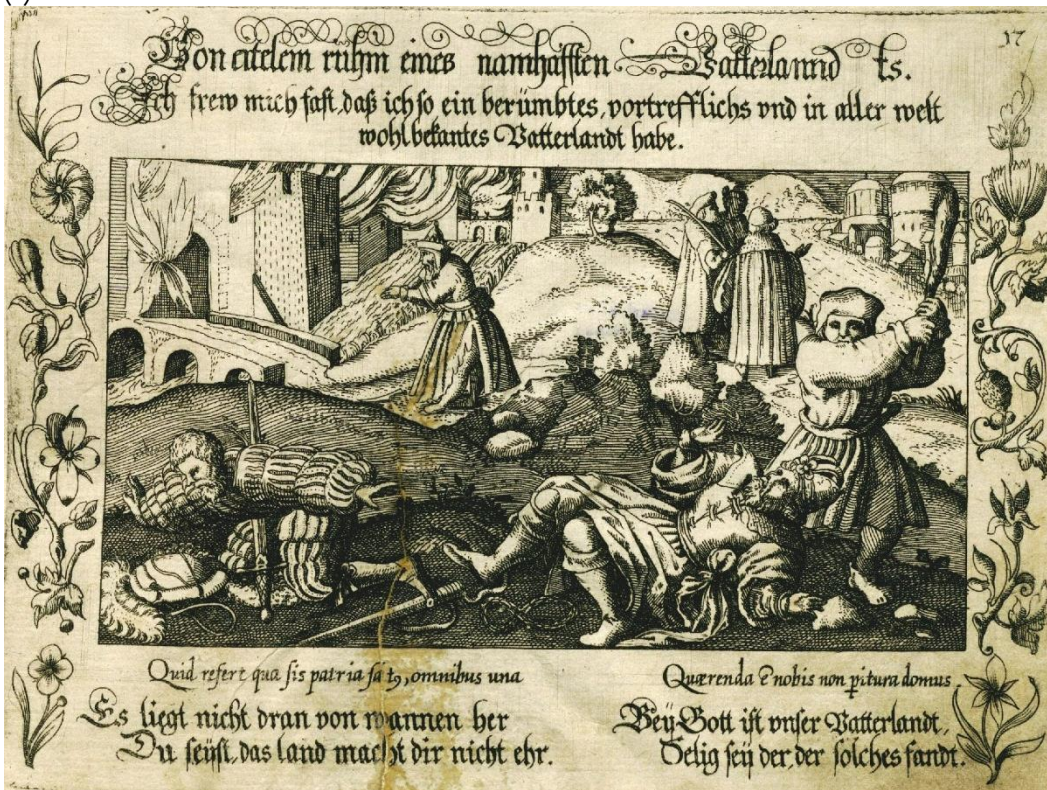 17
Von eitelem rühm eines namhafften Vatterlannd ts.
Ich frew mich fast, daß ich so ein berümbtes, vortrefflichs vnd in aller welt
wohlbekantes Vatterlandt habe.
Quid refert qua sis patria satꝰ, omnibus una
Quærenda ē nobis non ꝑitura domus
Es liegt nicht dran von wannen her
Du seÿst, das land macht dir nicht ehr.
Beÿ Gott ist vnser Vatterlandt,
Selig seÿ der, der solches fandt.